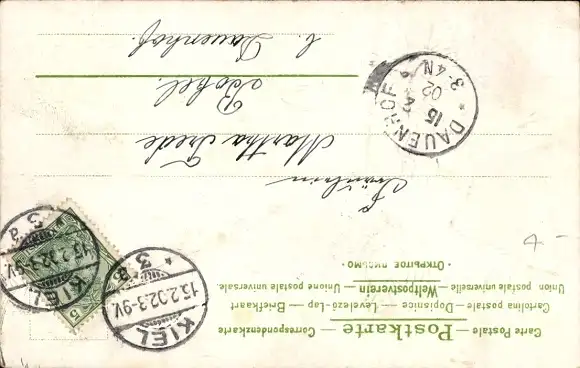 Carte Postale — Postkarte — Correspondenzkarte
Cartolina postale — Dopisnice — Levelező-Lap — Briefkaart
Union postale universelle — Weltpostverein — Unione postale universale.
· ОТКРЫТОЕ ПИСЬМО ·
KIEL
15.2.02.3-9V.
* 3 a
KIEL
15.2.02.3-9V.
3 a
5
4 -
Fräulein
Martha Frede
Bokel.
b. Dauenhof.
DAUENHOF
15
2
02
3-4N